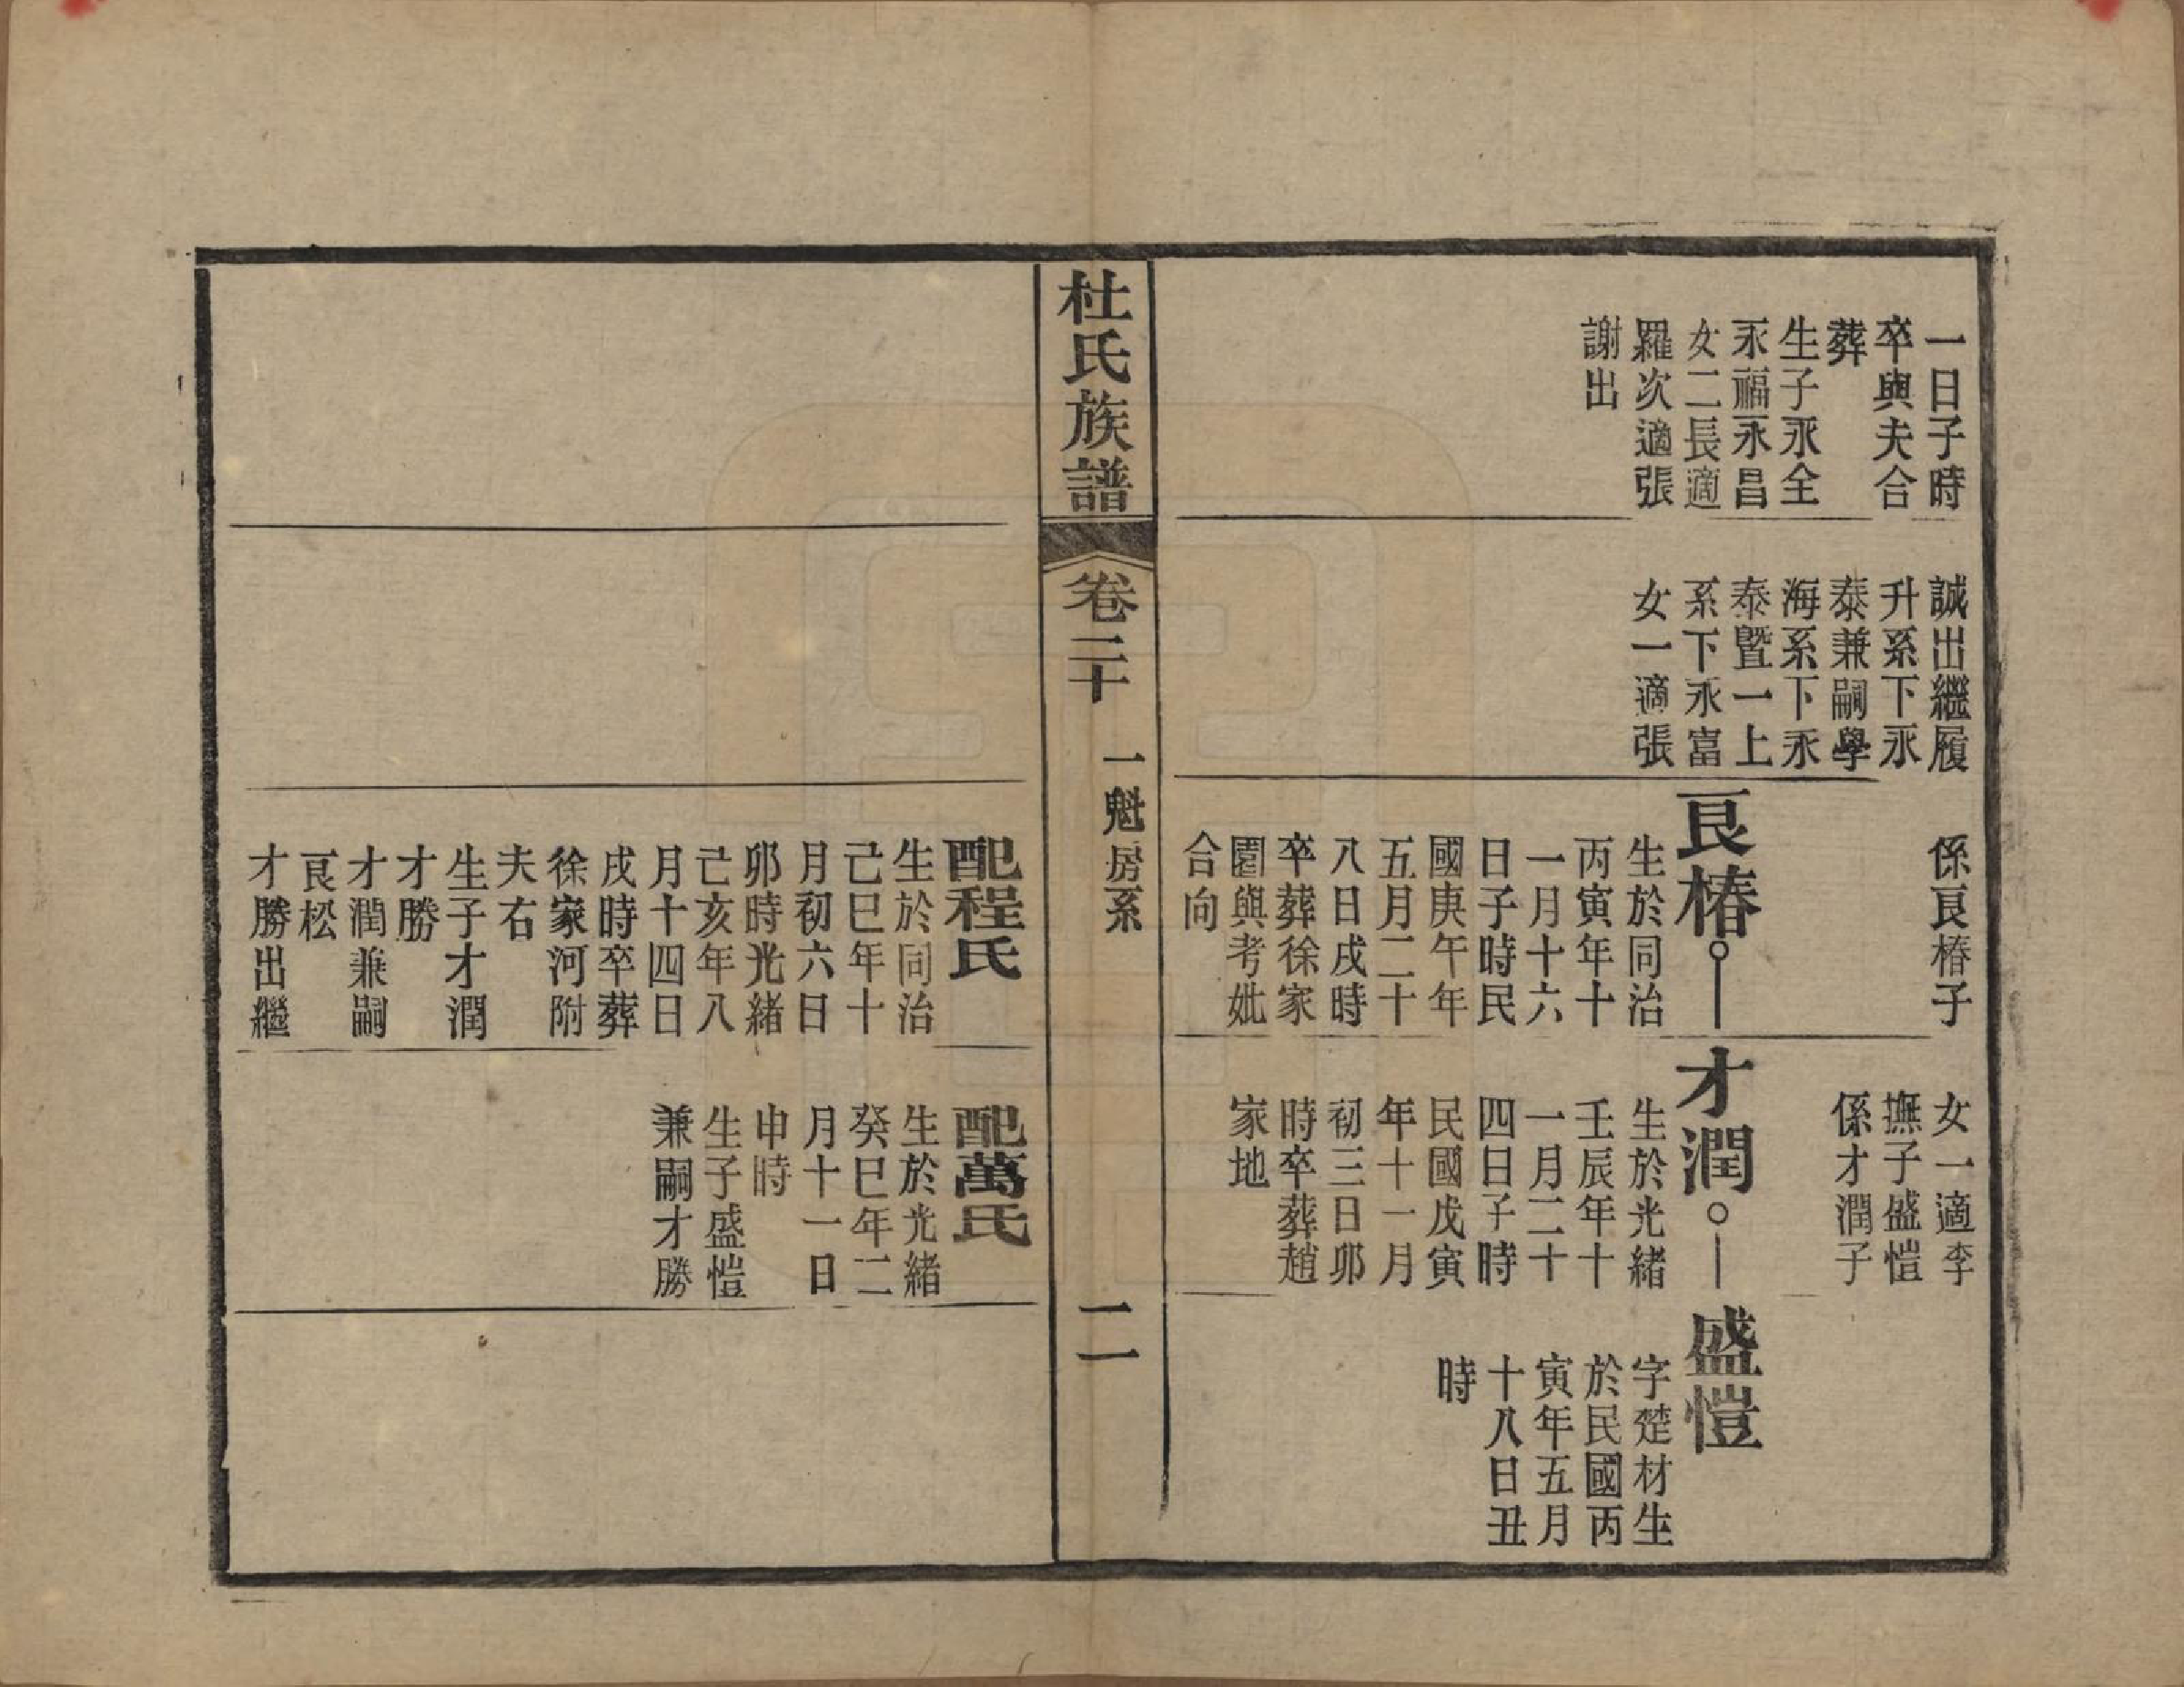 一日子時
卒與夫合
葬
生子永全
永福永昌
女二長適
羅次適張
謝出
誠出繼履
升系下永
泰兼嗣學
海系下永
泰暨一上
系下永富
女一適張
係良椿子
良椿
生於同治
丙寅年十
一月十六
日子時民
國庚午年
五月二十
八日戌時
卒葬徐家
園與考妣
合向
女一適李
撫子盛愷
係才潤子
才潤
生於光緒
壬辰年十
一月二十
四日子時
民國戊寅
年十一月
初三日卯
時卒葬趙
家地
盛愷
字楚材生
於民國丙
寅年五月
十八日丑
時
杜氏族譜
卷二十
一魁房系
二
配程氏
生於同治
己巳年十
月初六日
卯時光緒
己亥年八
月十四日
戌時卒葬
徐家河附
夫右
生子才潤
才勝
才潤兼嗣
良松
才勝出繼
配萬氏
生於光緒
癸巳年二
月十一日
申時
生子盛愷
兼嗣才勝